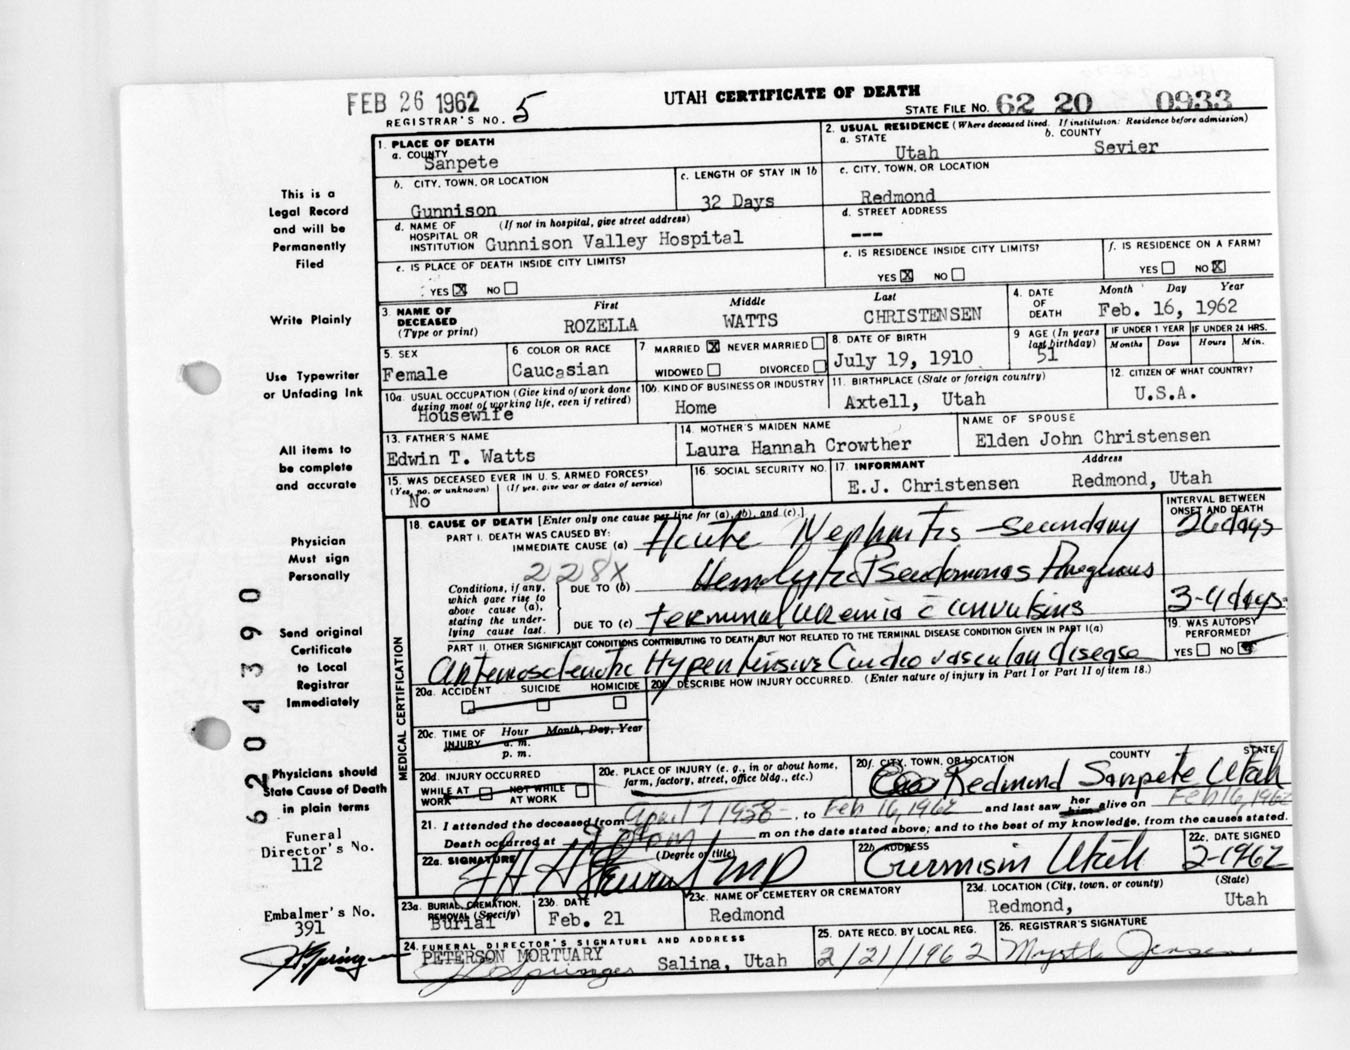 FEB 26 1962
REGISTRAR'S NO. 5
UTAH CERTIFICATE OF DEATH
STATE FILE NO. 62 20 0933
This is a
Legal Record
and will be
Permanently
Filed
Write Plainly
Use Typewriter
or Unfading Ink
All items to
be complete
and accurate
Physician
Must sign
Personally
Send original
Certificate
to Local
Registrar
Immediately
Physicians should
State Cause of Death
in plain terms
Funeral
Director's No.
112
Embalmer's No.
391
62 04390
1. PLACE OF DEATH
a. COUNTY
Sanpete
b. CITY, TOWN, OR LOCATION
Gunnison
c. LENGTH OF STAY IN 1b
32 Days
d. NAME OF HOSPITAL OR INSTITUTION (If not in hospital, give street address)
Gunnison Valley Hospital
e. IS PLACE OF DEATH INSIDE CITY LIMITS?
YES X NO
2. USUAL RESIDENCE (Where deceased lived. If institution: Residence before admission)
a. STATE
Utah
b. COUNTY
Sevier
c. CITY, TOWN, OR LOCATION
Redmond
d. STREET ADDRESS
---
e. IS RESIDENCE INSIDE CITY LIMITS?
YES X NO
f. IS RESIDENCE ON A FARM?
YES NO X
3. NAME OF DECEASED (Type or print)
First Middle Last
ROZELLA WATTS CHRISTENSEN
4. DATE OF DEATH
Month Day Year
Feb. 16, 1962
5. SEX
Female
6 COLOR OR RACE
Caucasian
7 MARRIED X NEVER MARRIED
WIDOWED DIVORCED
8. DATE OF BIRTH
July 19, 1910
9 AGE (In years last birthday)
51
IF UNDER 1 YEAR
Months Days
IF UNDER 24 HRS.
Hours Min.
10a. USUAL OCCUPATION (Give kind of work done during most of working life, even if retired)
Housewife
10b. KIND OF BUSINESS OR INDUSTRY
Home
11. BIRTHPLACE (State or foreign country)
Axtell, Utah
12. CITIZEN OF WHAT COUNTRY?
U.S.A.
13. FATHER'S NAME
Edwin T. Watts
14. MOTHER'S MAIDEN NAME
Laura Hannah Crowther
NAME OF SPOUSE
Elden John Christensen
15. WAS DECEASED EVER IN U.S. ARMED FORCES?
(Yes, no, or unknown) (If yes, give war or dates of service)
No
16. SOCIAL SECURITY NO.
17. INFORMANT Address
E.J. Christensen Redmond, Utah
MEDICAL CERTIFICATION
18. CAUSE OF DEATH [Enter only one cause per line for (a), (b), and (c).]
INTERVAL BETWEEN ONSET AND DEATH
PART I. DEATH WAS CAUSED BY:
IMMEDIATE CAUSE (a) Acute Nephritis - secondary 26 days
228X
Conditions, if any, which gave rise to above cause (a), stating the underlying cause last.
DUE TO (b) Hemolytic Pseudomonas
DUE TO (c) terminal uremia c̄ convulsions 3-4 days
PART II. OTHER SIGNIFICANT CONDITIONS CONTRIBUTING TO DEATH BUT NOT RELATED TO THE TERMINAL DISEASE CONDITION GIVEN IN PART I(a)
Arteriosclerotic Hypertensive Cardio vascular disease
19. WAS AUTOPSY PERFORMED?
YES NO
20a. ACCIDENT SUICIDE HOMICIDE
20b. DESCRIBE HOW INJURY OCCURRED. (Enter nature of injury in Part I or Part II of item 18.)
20c. TIME OF INJURY Hour Month, Day, Year
a. m.
p. m.
20d. INJURY OCCURRED
WHILE AT WORK NOT WHILE AT WORK
20e. PLACE OF INJURY (e. g., in or about home, farm, factory, street, office bldg., etc.)
20f. CITY, TOWN, OR LOCATION COUNTY STATE
Redmond Sanpete Utah
21. I attended the deceased from April 7 1958, to Feb 16, 1962 and last saw her him alive on Feb 16, 1962
Death occurred at m on the date stated above; and to the best of my knowledge, from the causes stated.
22a. SIGNATURE (Degree or title)
MD
22b. ADDRESS
Gunnison Utah
22c. DATE SIGNED
2-1962
23a. BURIAL, CREMATION, REMOVAL (Specify)
Burial
23b. DATE
Feb. 21
23c. NAME OF CEMETERY OR CREMATORY
Redmond
23d. LOCATION (City, town, or county) (State)
Redmond, Utah
24. FUNERAL DIRECTOR'S SIGNATURE AND ADDRESS
PETERSON MORTUARY
Salina, Utah
25. DATE RECD. BY LOCAL REG.
2/21/1962
26. REGISTRAR'S SIGNATURE
Myrtle Jensen